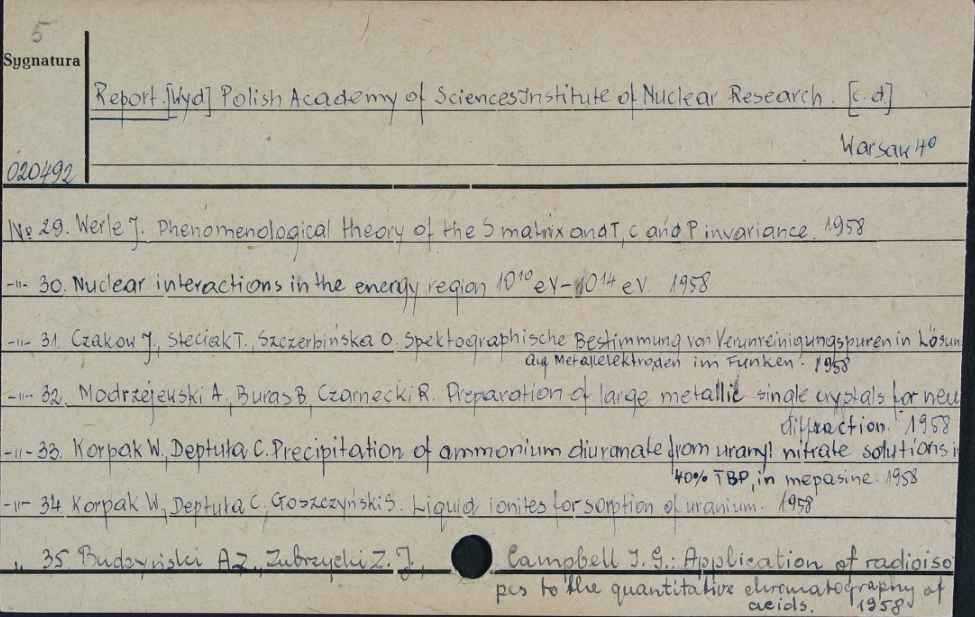 5
Sygnatura
Report. [Wyd] Polish Academy of Sciences Institute of Nuclear Research. [c.d.]
Warsaw
020492
№ 29. Werle J. Phenomenological theory of the S matrix and T, C and P invariance. 1958
-"- 30. Nuclear interactions in the energy region 10¹⁰ eV - 10¹⁴ eV. 1958
-"- 31. Czakow J., Steciak T., Szczerbińska O. Spektographische Bestimmung von Verunreinigungspuren in Lösun
auf Metallelektroden im Funken. 1958
-"- 32. Modrzejewski A., Buras B., Czarnecki R. Preparation of large metallic single crystals for neu
diffraction. 1958
-"- 33. Korpak W., Deptuła C. Precipitation of ammonium diuranate from uranyl nitrate solutions i
40% TBP, in mepasine. 1958
-"- 34 Korpak W., Deptuła C., Goszczyński S. Liquid ionites for sorption of uranium. 1958
" 35. Budzyński A.Z., Zubrzycki Z. J., Campbell I. G.: Application of radioiso
pes to the quantitative chromatography of
acids. 1958